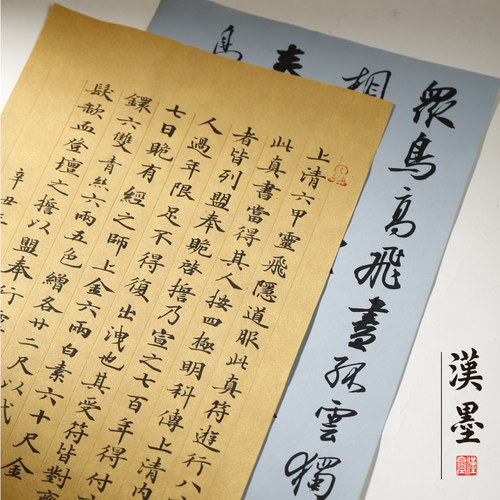 眾鳥高飛盡孤雲獨
相
鳥
上清六甲靈飛隱道服此真符遊行八
此真書當得其人按四極明科傳上清內
者皆列盟奉跪啓誓乃宣之七百年得付
人過年限足不得復出洩也其受符皆對齋
七日跪有經之師上金六兩白素六十尺金
鐶六雙青絲六兩五色繒各廿二尺以代
髮歃血登壇之誓以盟奉行靈
辛丑
漢墨